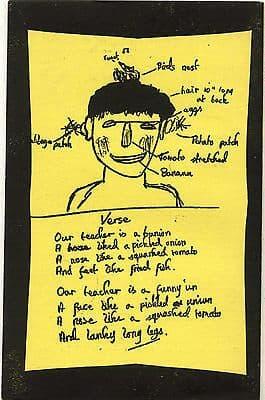 Birds nest
hair 10" long
at back
eggs
Potato patch
Tomato stretched
Banana
Verse
Our teacher is a bunion
A liked a pickled onion
A nose like a squashed tomato
And feet like fried fish.
Our teacher is a funny'un
A face like a pickled onion
A nose like a squashed tomato
And lanky long legs.